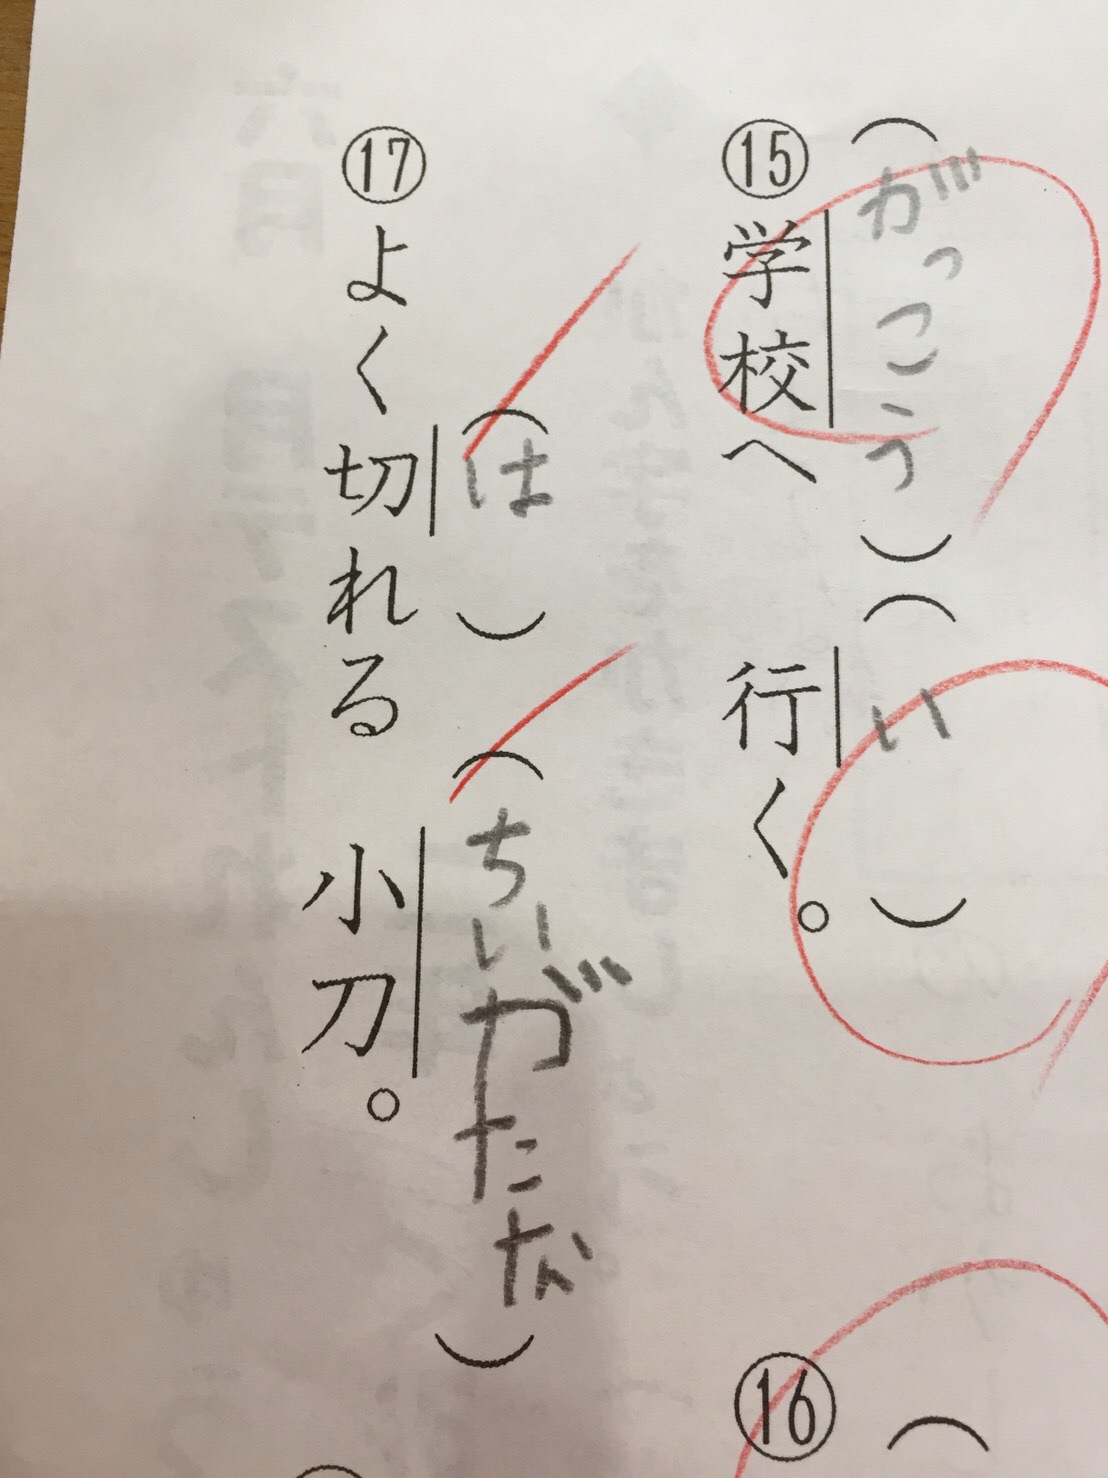 ⑮学校へ行く。
(がっこう)(い)
⑯(
⑰よく切れる 小刀。
(は)(ちいがたな)